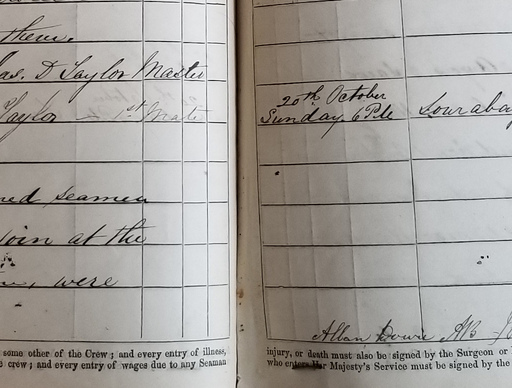 them.
as. D Taylor Master
Taylor — 1st Mate
ned seamen
join at the
were
some other of the Crew; and every entry of illness,
crew; and every entry of wages due to any Seaman
20th October
Sunday 6 P
Sourabay
Allan AB
injury, or death must also be signed by the Surgeon or
who enters Her Majesty's Service must be signed by the